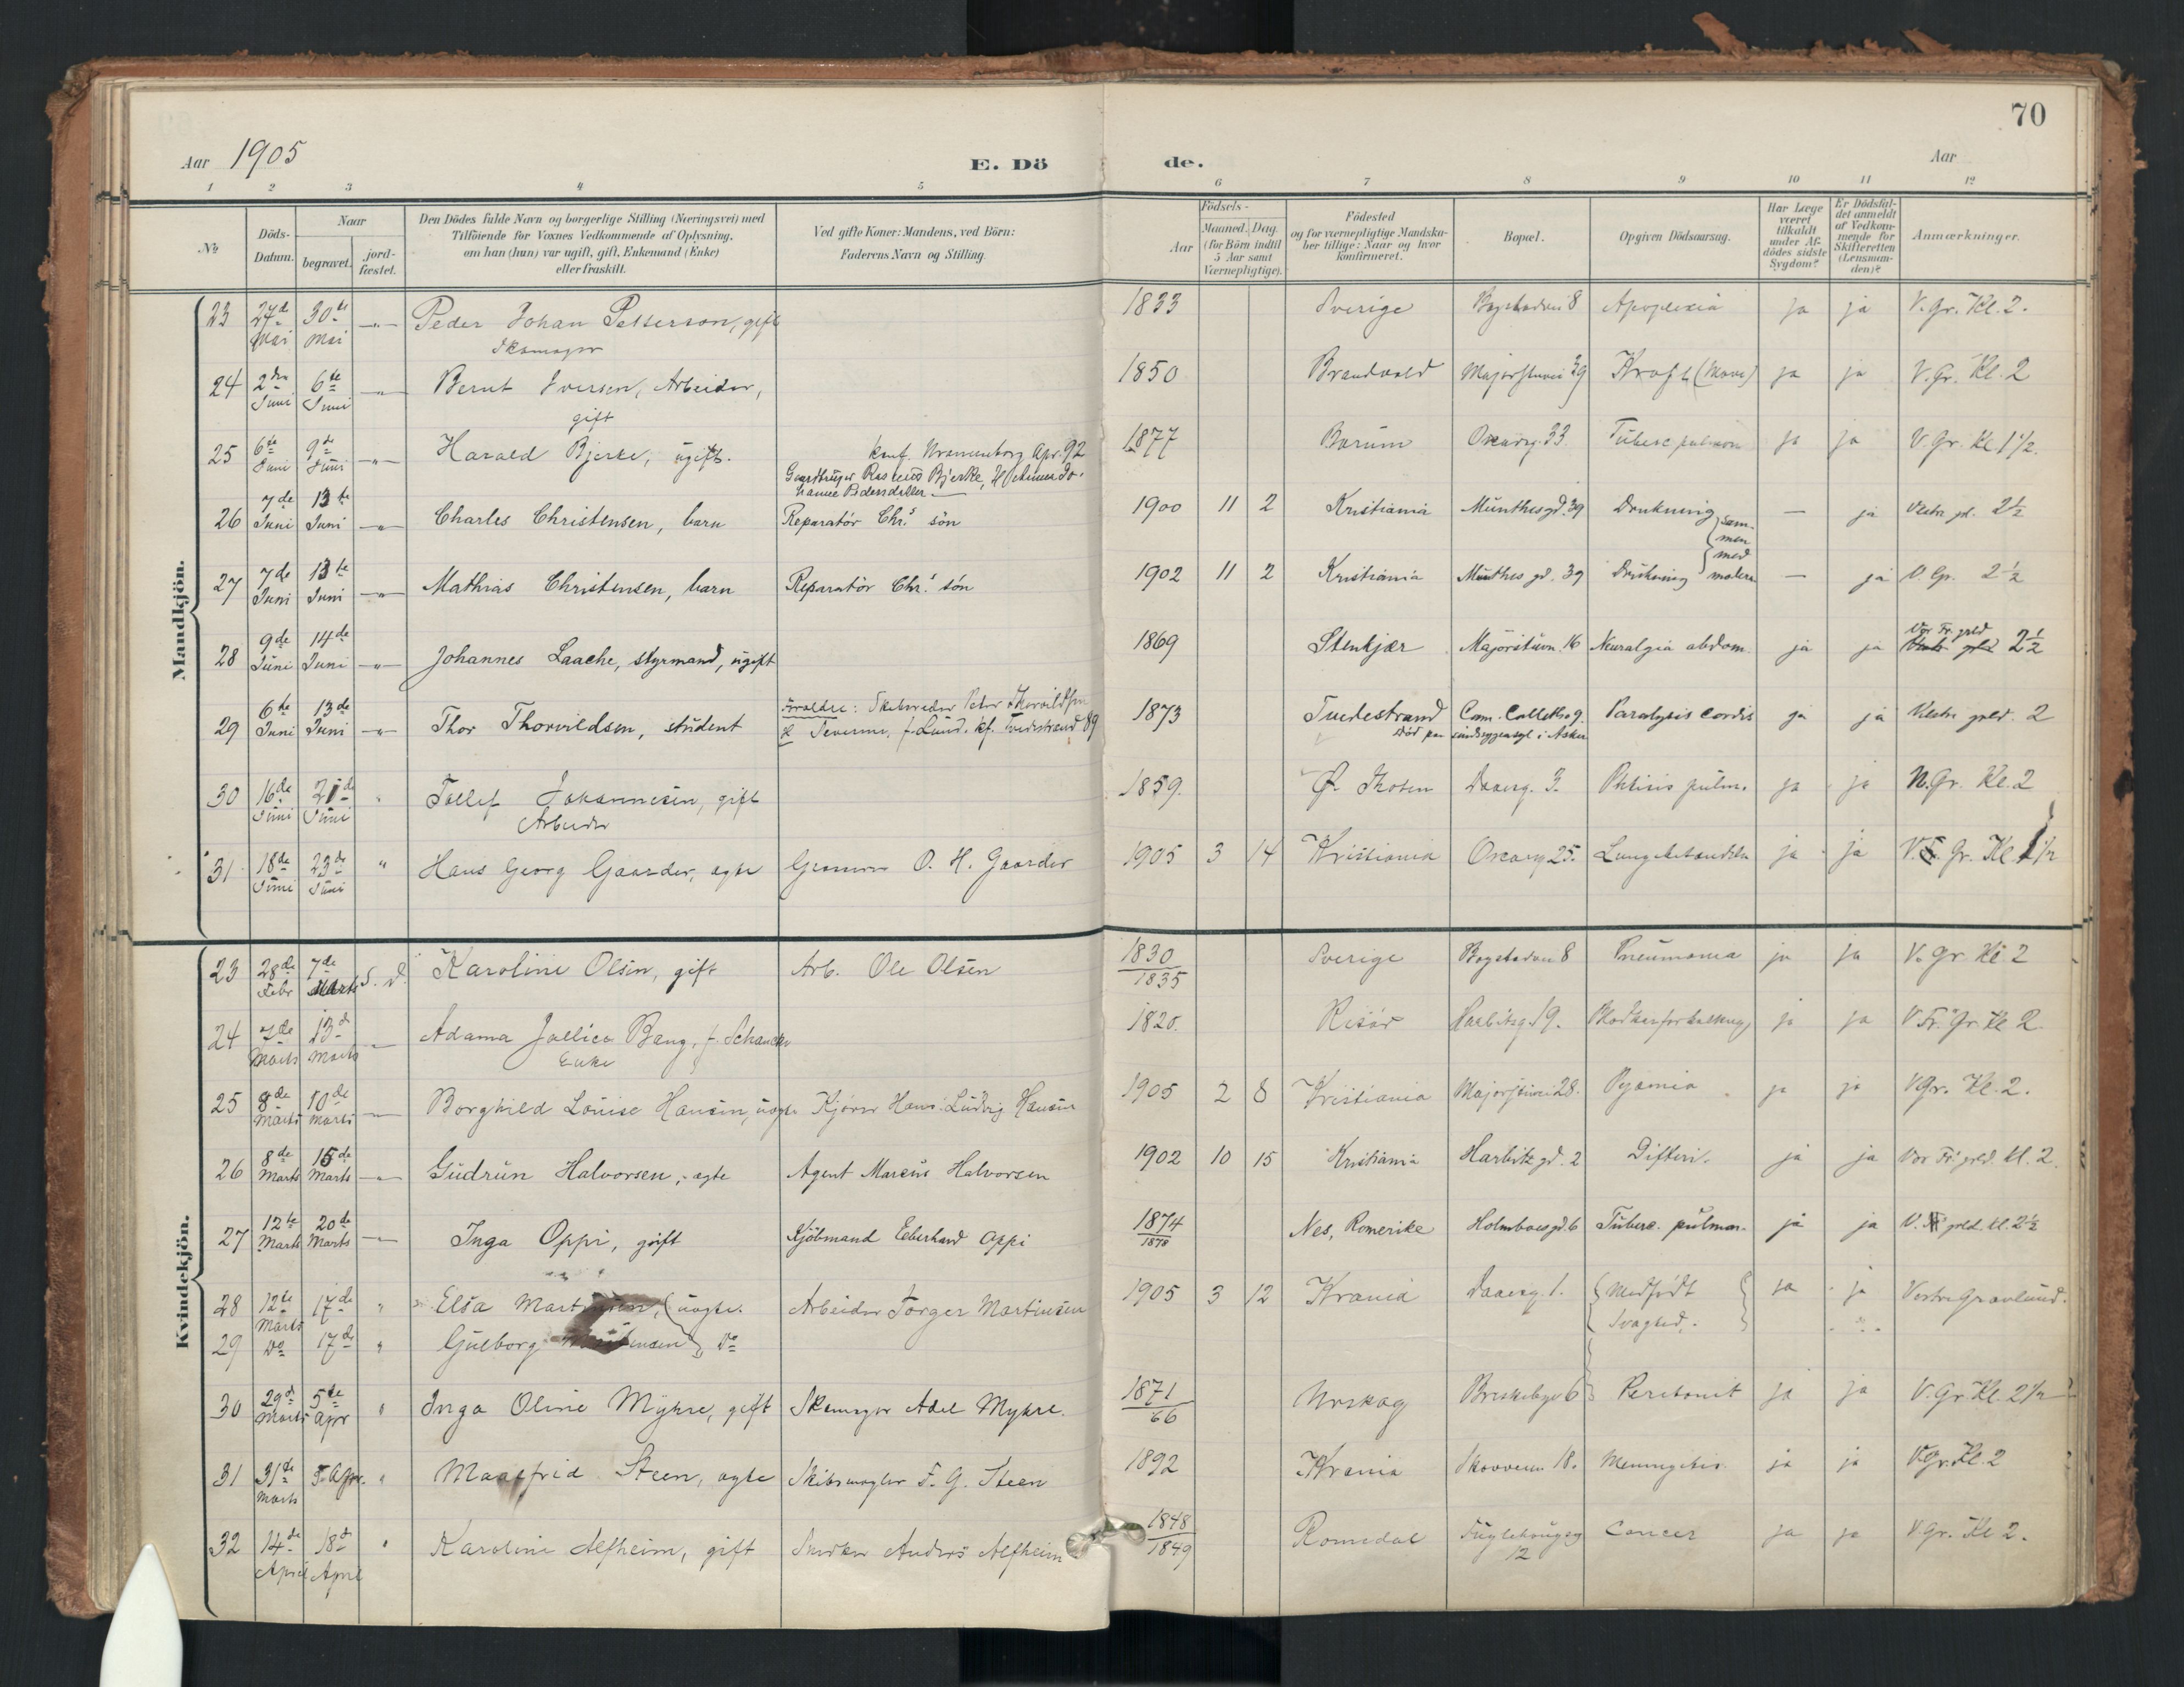 70
Aar 1905
E. Dö de.
Aar
1 2 3 4 5 6 7 8 9 10 11 12
No
Döds-Datum.
Naar
begravet.
jord-fæstet.
Den Dödes fulde Navn og borgerlige Stilling (Næringsvei) med
Tilföiende for Voxnes Vedkommende af Oplysning,
om han (hun) var ugift, gift, Enkemand (Enke)
eller fraskilt.
Ved gifte Koner: Mandens, ved Börn:
Faderens Navn og Stilling.
Födsels-
Aar
Maaned. Dag.
(for Börn indtil
5 Aar samt
Værnepligtige).
Födested
og for værnepligtige Mandska-
ber tillige: Naar og hvor
konfirmeret.
Bopæl.
Opgiven Dödsaarsag.
Har Læge
været
tilkaldt
under Af-
dödes sidste
Sygdom?
Er Dödsfal-
det anmeldt
af Vedkom-
mende for
Skifteretten
(Lensman-
den)?
Anmærkninger.
Mandkjön.
23 27de Mai 30te Mai -"- Peder Johan Petterson, gift 1833 Sverige Bogstadvei 8 Apoplexia ja ja V. Gr. Kl. 2.
Skomager
24 2den Juni 6te Juni -"- Bernt Iversen, Arbeider, 1850 Brandvold Majorstuvei 39 Kræft (Mave) ja ja V. Gr. Kl. 2
gift
25 6te Juni 9de Juni -"- Harald Bjerke, ugift. konf. Uranienborg Apr. 92 1877 Bærum Oscarsg. 33. Tuberc pulmon ja ja V. Gr. Kl 1 1/2.
Gaardbruger Bjerke,
26 7de Juni 13te Juni -"- Charles Christensen, barn Reparatör Chr.s sön 1900 11 2 Kristiania Munthesgd. 39 Drukning — ja Vestre gd. 2 1/2
sam-
men
med
27 7de Juni 13te Juni -"- Mathias Christensen, barn Reparatör Chr.s sön 1902 11 2 Kristiania Munthes gd. 39 Drukning moderen — ja V. Gr. 2 1/2
28 9de Juni 14de Juni -"- Johannes Laache, styrmand, ugift 1869 Stenkjær Majorstuvn. 16 Neuralgia abdom. ja ja Vor Fr. grld 2 1/2
29 6te Juni 13de Juni -"- Thor Thorvildsen, student Forældre: Skibsreder Peter Thorvildsen 1873 Tvedestrand Cam. Colletts g. Paralysis cordis ja ja Vestre grld. 2
& Severine, f. Lund. kf. Tvedestrand 89
död paa sindssygeasyl i Asker
30 16de Juni 21de Juni " Tollef Johannesen, gift 1859. Ø. Thoten Daaesg. 3. Phtisis pulm. ja ja N. Gr. Kl. 2
Arbeider
31 18de Juni 23de Juni " Hans Georg Gaarder, ægte O. H. Gaarder 1905 3 14 Kristiania Oscarsg 25. Lungebetændelse ja ja V. F. Gr. Kl 1 1/2
Kvindekjön.
23 28de Febr 7de Marts S. D. Karoline Olsen, gift Arb. Ole Olsen 1830 1835 Sverige Bogstadvei 8 Pneumonia ja ja V. Gr. Kl. 2
24 7de Marts 13de Marts -"- Adama Jallica Bang, f. Schancke 1820. Risör Harbitzg. 19. ja ja V. Fr. Gr. Kl 2.
Enke
25 8de Marts 10de Marts -"- Borghild Louise Hansen, uægte Kjörer Hans Ludvig Hansen 1905 2 8 Kristiania Majorstuvei 28. Pyæmia ja ja V Gr. Kl. 2.
26 8de Marts 15de Marts -"- Gudrun Halvorsen, ægte Agent Marcus Halvorsen 1902 10 15 Kristiania Harbitz gd. 2 Difteri. ja ja Vor Fr. grld. kl. 2.
27 12te Marts 20de Marts -"- Inga Oppi, gift Kjöbmand Eeberhard Oppi 1874 1878 Nes, Romerike Holmboesgd. 6 Tuberc. pulmon. ja ja V. grld. kl. 2 1/2
28 12te Marts 17de " Elsa Martinsen, uægte. Arbeider Torger Martinsen 1905 3 12 Krania Daaesg 1. Medfödt Svaghed. ja ja Vestre Gravlund.
29 Do 17de " Gulborg Do - " -
30 29de Marts 5te Apr " Inga Oline Myhre, gift Skomager Adel Myhre. 1871 66 Urskog Briskebyv 6 Peritonit ja ja V. Gr. Kl. 2 1/2
31 31de Marts 5. Apr. " Maalfrid Steen, ægte Skibsmægler F. G. Steen 1892 Krania Skovveien 18. Meningitis ja ja V. Gr. Kl. 2
32 14de April 18de April " Karoline Alfheim, gift Snedker Anders Alfheim 1848 1849 Romedal Fuglehaugsg 12 Cancer ja ja V. Gr. Kl 2.